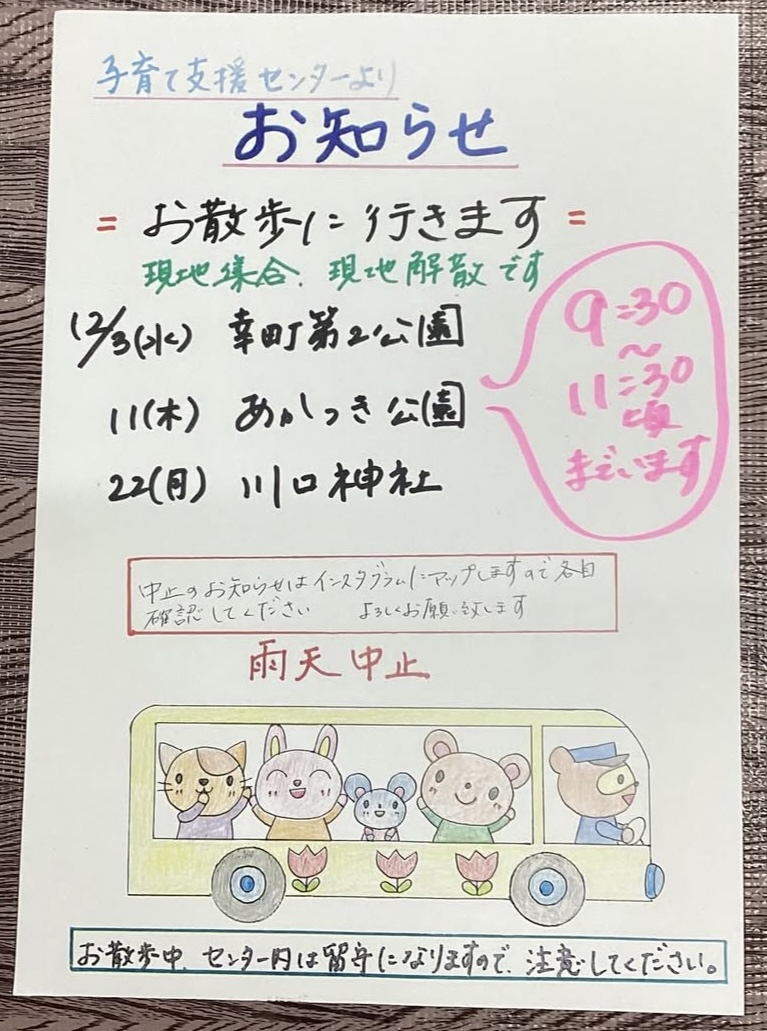 子育て支援センターより
お知らせ
= お散歩に行きます =
現地集合、現地解散です
12/3(水) 幸町第2公園
11(木) あかつき公園
22(月) 川口神社
9:30
〜
11:30
頃
までいます
中止のお知らせはインスタグラムにアップしますので各自
確認してください よろしくお願い致します
雨天中止
お散歩中、センター内は留守になりますので、注意してください。